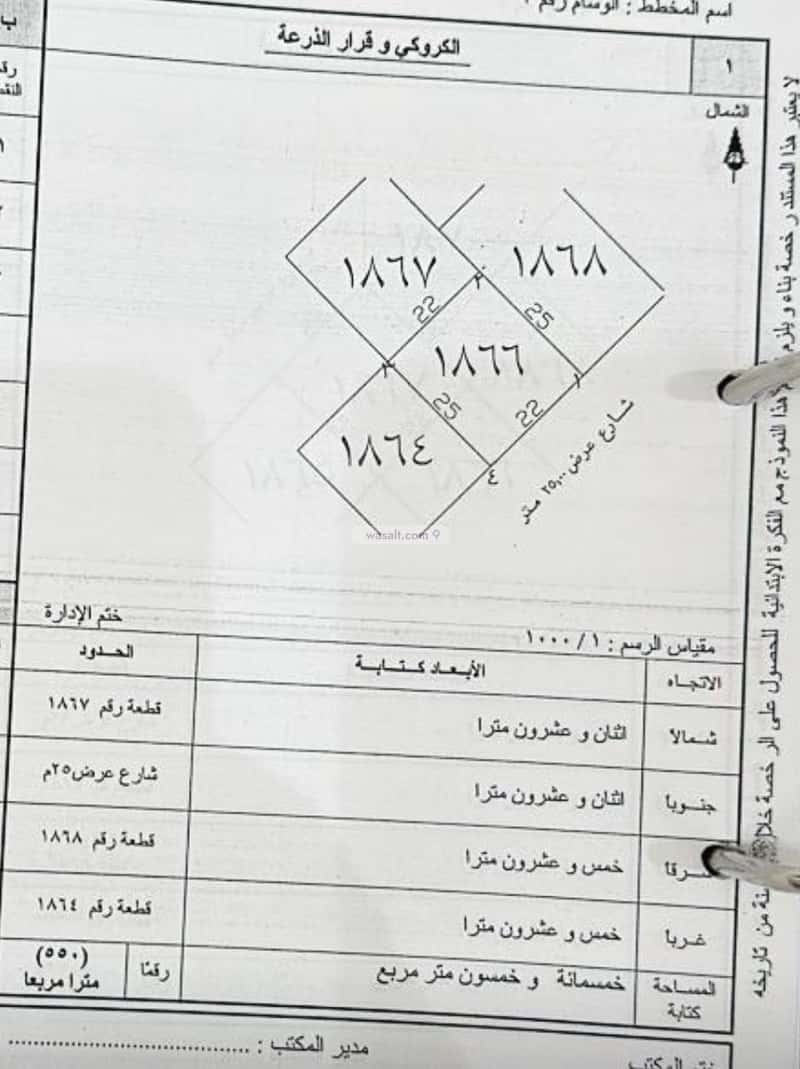 اسم المخطط : الوسام رقم
١
الكروكي و قرار الذرعة
ب
الشمال
١٨٦٧
١٨٦٨
22
25
١٨٦٦
25
22
١٨٦٤
١
٢
٣
٤
شارع عرض ٢٥,٠٠ متر
wasalt.com
مقياس الرسم : ١ / ١٠٠٠
ختم الإدارة
الاتجاه
الأبعاد كتابة
الحدود
شمالا
اثنان و عشرون مترا
قطعة رقم ١٨٦٧
جنوبا
اثنان و عشرون مترا
شارع عرض٢٥م
شرقا
خمس و عشرون مترا
قطعة رقم ١٨٦٨
غربا
خمس و عشرون مترا
قطعة رقم ١٨٦٤
المساحة كتابة
خمسمائة و خمسون متر مربع
رقمًا
(٥٥٠)
مترا مربعا
مدير المكتب :
ختم المكتب
لا يعتبر هذا المستند رخصة بناء و يلزم هذا النموذج مع الفكرة الابتدائية للحصول على الرخصة خلال سنة من تاريخه